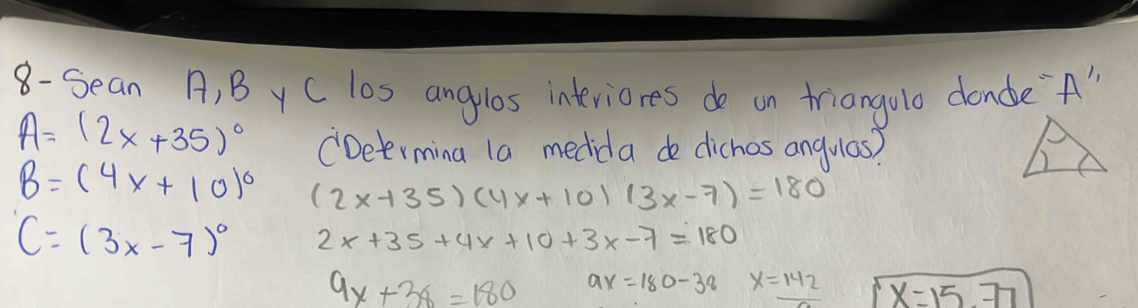 8- Sean A, B y C los angulos interiores de un triangulo donde "A"
A= (2x+35)° ¿Determina la medida de dichos angulos?
B= (4x+10)° (2x+35)(4x+10)(3x-7)=180
C= (3x-7)° 2x+35+4x+10+3x-7=180
9x+38=180 9x=180-38 x=142 x=15.77